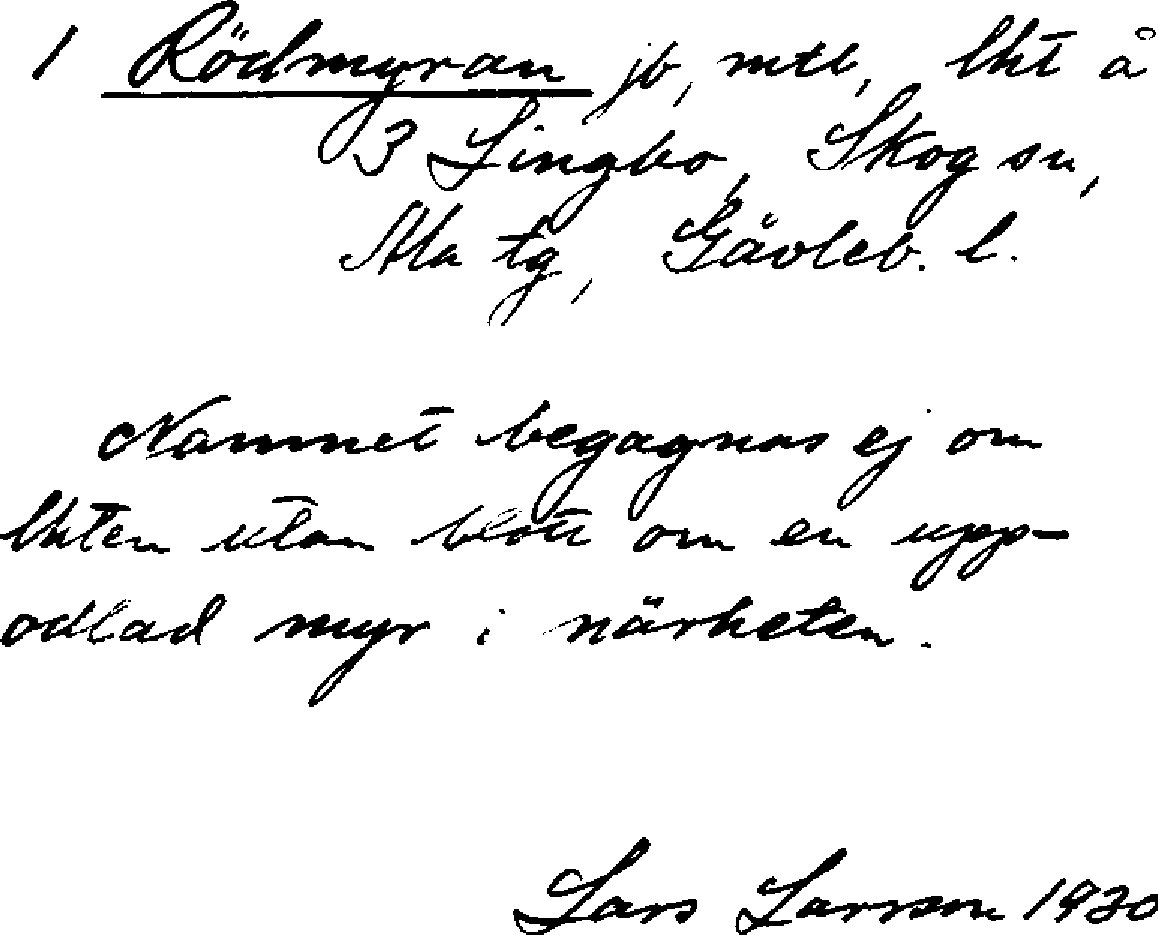 1 Rödmyran jb, mtl, lht å
3 Lingbo, Skog sn,
Ala tg, Gävleb. l.
Namnet begagnas ej om
lhten utan blott om en upp-
odlad myr i närheten.
Lars Larsson 1930